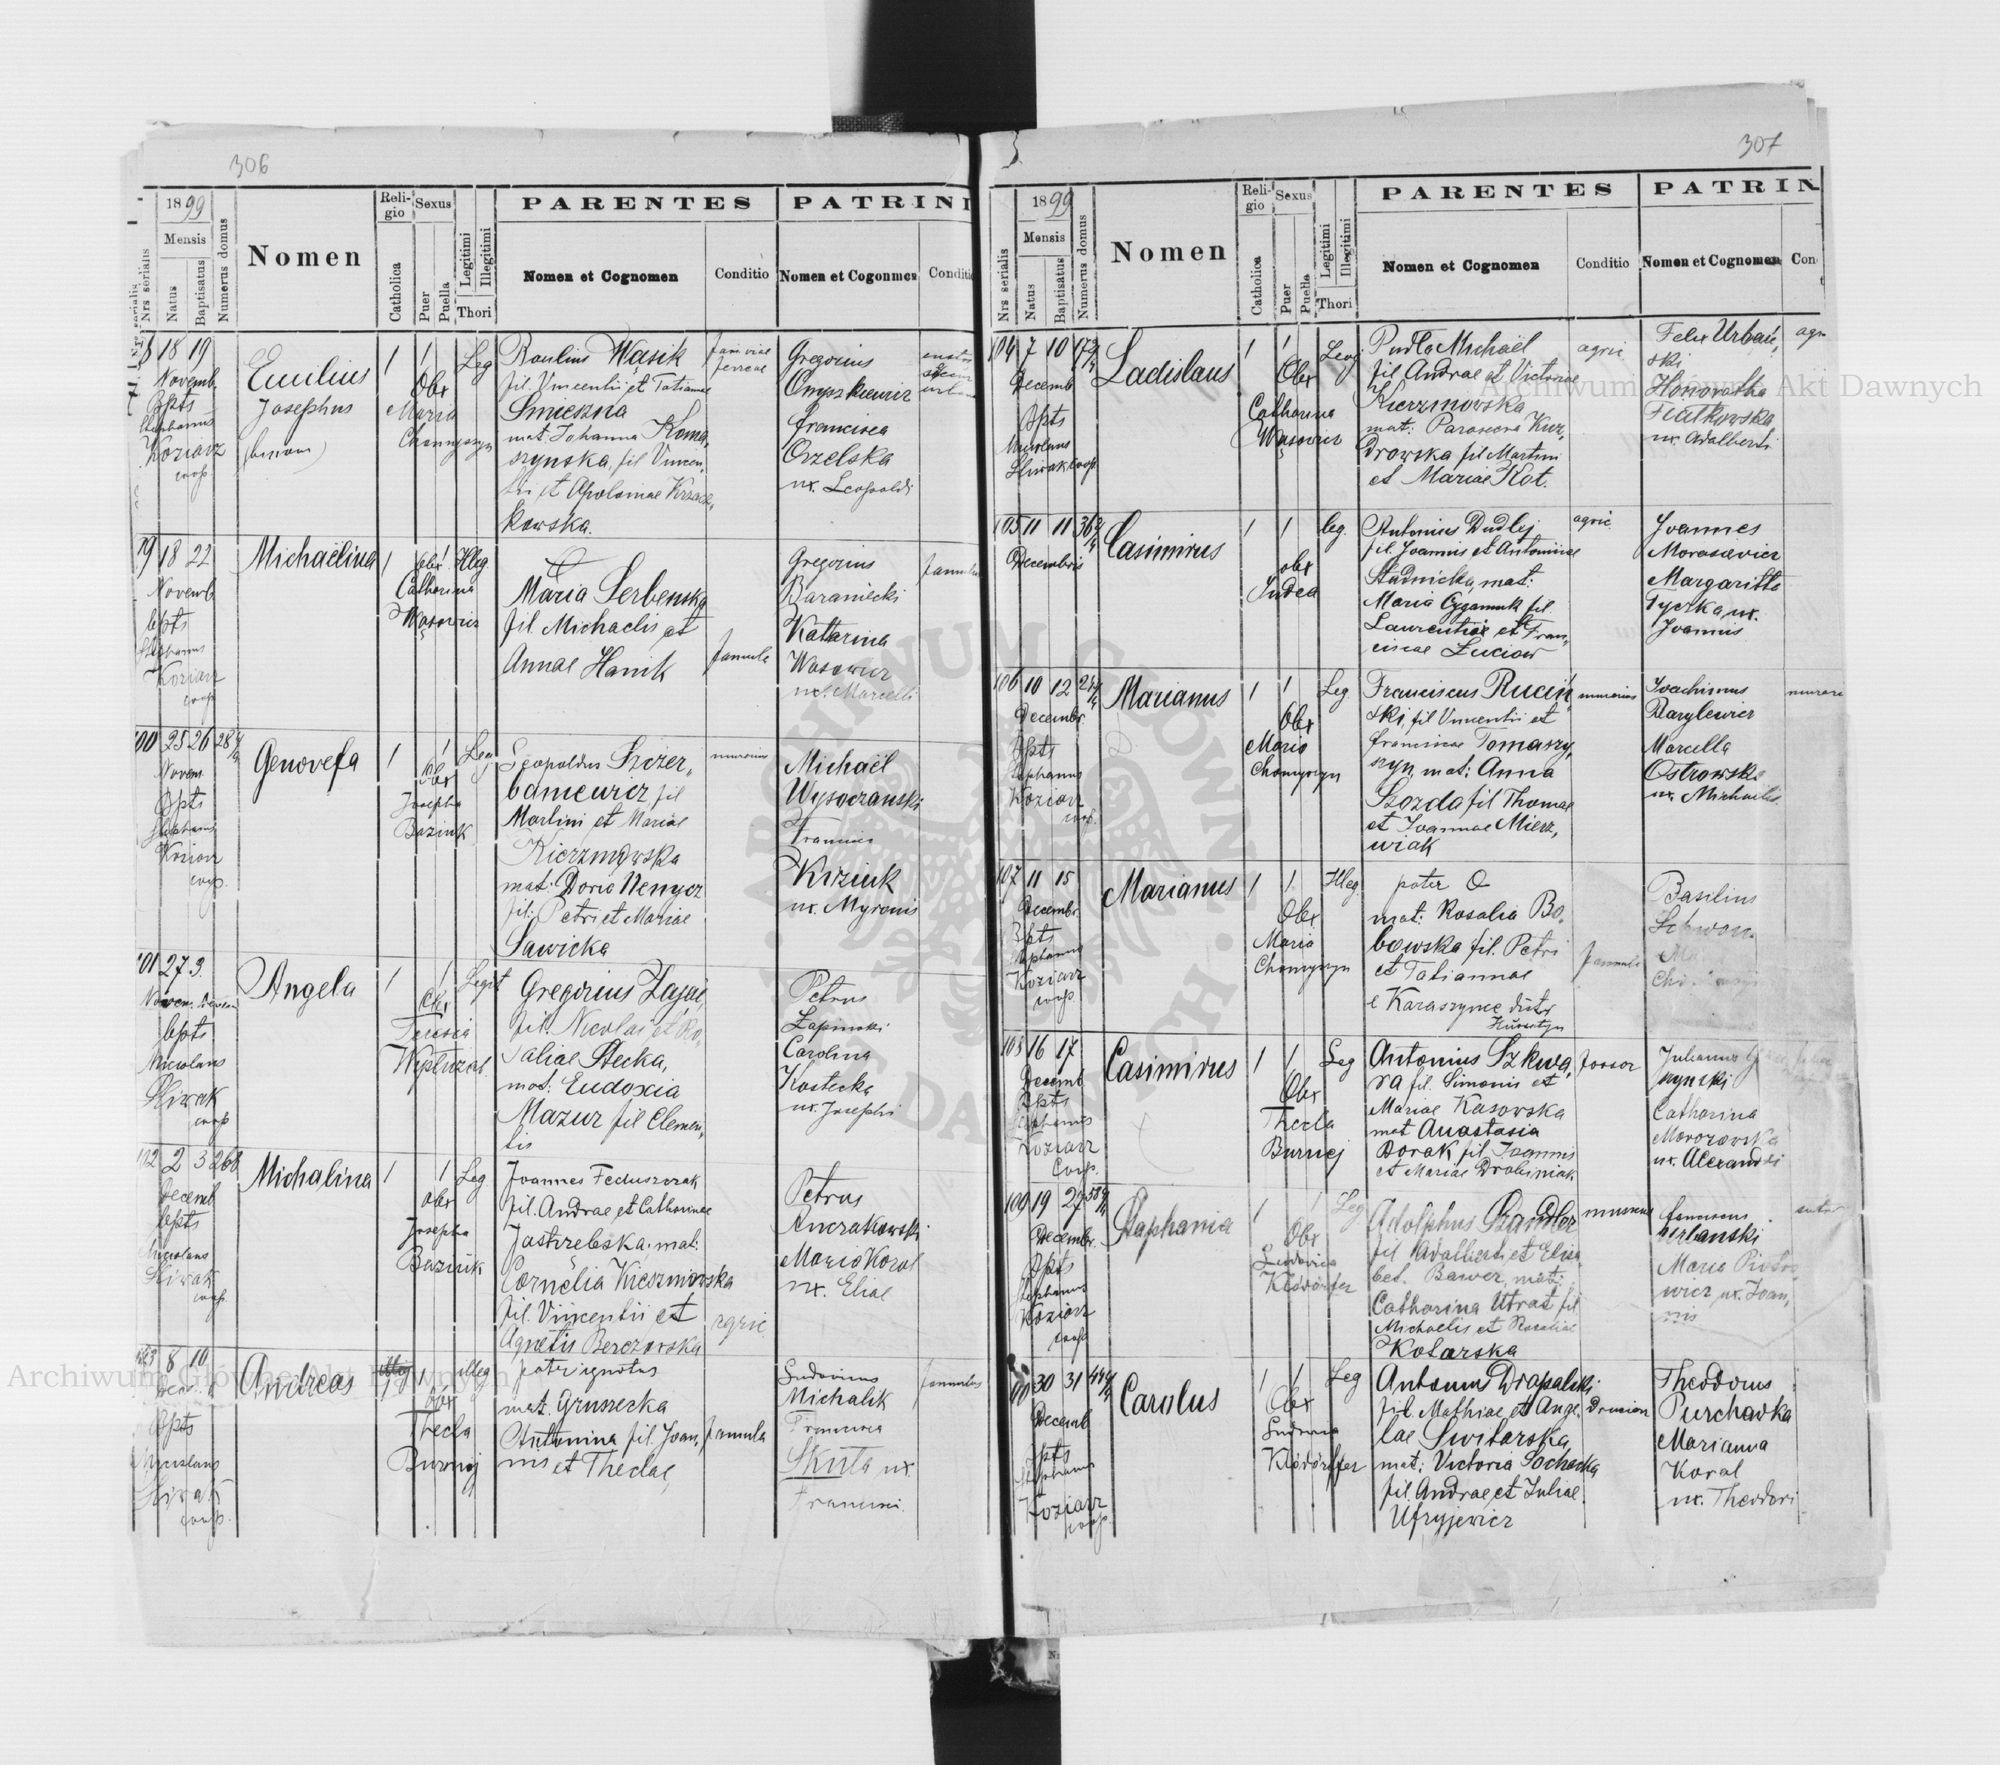 306
1899
Mensis
Nrs serialis
Natus
Baptisatus
Numerus domus
Nomen
Religio
Catholica
Sexus
Puer
Puella
Legitimi
Illegitimi
Thori
PARENTES
Nomen et Cognomen
Conditio
PATRINI
Nomen et Cogonmen
Conditio
18 19
Novemb.
Bpts
Stephanus
Koziarz
coop.
Emilius
Josephus
1 1 Leg
Obx
Maria
Chomyszyn
Paulius Wąsik
fil. Vincentii et Tatianae
Smieszna
mat: Johanna Koma,
szynska, fil Vincen,
tii et Apoloniae Krzacz,
kowska.
fam viae
ferreae
Gregorius
Onyszkiewicz
Francisca
Orzelska
ux. Leopoldi
18 22
Novemb.
bpts
Stephanus
Koziarz
coop.
Michaëlina
1 obx 1 Illeg.
Catharina
Wąsowicz
Maria Serbenska
fil. Michaelis et
Annae Hanik
famula
Gregorius
Baraniecki
Katarina
Wąsowicz
ux. Marcelli
100 25 26 28
Novem
Bpts
Stephanus
Koziarz
coop.
Genovefa
1 1 Leg
obx
Josepha
Baziuk
Leopoldus Szczer,
baniewicz, fil
Martini et Mariae
Kierzmowska
mat: Doria Nenycz
fil: Petri et Mariae
Sawicka
murarius
Michaël
Wysoczanski
Kiziuk
ux. Myronis
101 27 3
bpts
Nicolaus
Sliwak
coop
Angela
1 1 Legit
Obx
Teresia
Gregorius Zając,
fil. Nicolai et Ro,
saliae Stecka,
mat: Eudoxia
Mazur fil Clemen,
tis
Petrus
Łapinski
Carolina
Kostecka
ux. Josephi
102 2 3 268
Decemb
bpts
Nicolaus
Sliwak
coop.
Michalina
1 1 Leg
obx
Josepha
Baziuk
Joannes Feduszczak
fil. Andrae et Catharinae
Jastrzebska, mat:
Cornelia Kieszmowska
fil. Vincentii et
Agnetis Berezowska
agric.
Petrus
Andrakowski
Maria Koral
ux. Eliae
103 8 10
Bpts
Sliwak
coop.
Andreas
1 illeg
obx
Thecla
Burniej
pater ignotus
mat. Gruszecka
Antonina fil. Joan,
nis et Theclae,
famula
Ludovicus
Michalik
Francisca
Skuta ux.
Francisci
famulus
307
1899
Mensis
Nrs serialis
Natus
Baptisatus
Numerus domus
Nomen
Religio
Catholica
Sexus
Puer
Puella
Legitimi
Illegitimi
Thori
PARENTES
Nomen et Cognomen
Conditio
PATRIN
Nomen et Cognomen
Con
104 7 10
Decemb
Bpts
Nicolaus
Sliwak coop
Ladislaus
1 1 Leg
Obx
Catharina
Wąsowicz
Pudło Michaël
fil Andrae et Victoriae
Kierzmowska
mat: Parasceva Kur,
drowska fil Martini
et Mariae Kot.
agric
Felix Urbań,
ski
Honoratha
Fiatkowska,
ux. Adalberti
agr
105 11 11 36
Decembris
Casimirus
1 1 leg.
obx
Judea
Antonius Dudlej
fil. Joannis et Antoninae
Stadnicka, mat:
Maria Cyganiuk fil.
Laurentii et Fran,
ciscae Łuciow
agric
Joannes
Morasievicz
Margaritta
Tycska, ux.
Joannis
106 10 12
Decembr.
Bpts
Stephanus
Koziarz
coop.
Marianus
1 1 Leg
Obx
Maria
Chomyszyn
Franciscus Ruciń,
ski, fil Vincentii et
Franciscae Tomaszy,
szyn, mat: Anna
Szozda fil Thomae
et Joannae Mierz,
wiak
murarius
Joachimus
Darylewicz
Marcella
Ostrowska
ux. Michaelis
107 11 15
Decembr.
Bpts
Stephanus
Koziarz
coop
Marianus
1 1 Illeg
Obx
Maria
Chomyszyn
pater O
mat: Rosalia Bo,
bowska fil. Petri
et Tatiannae
e Karaszynce distr
Husiatyn
famula
Basilius
108 16 17
Decemb
Bpts
Stephanus
Koziarz
Coop.
Casimirus
1 1 Leg
Obx
Thecla
Burniej
Antonius Szkwa,
ra fil. Simonis et
Mariae Kasowska
mat Anastasia
Borak fil Joannis
et Mariae Drobiniak
fossor
Julianus
szynski
Catharina
Morozowska
ux. Alexandri
109 19 27 58
Decembr.
Bpts
Stephanus
Koziarz
coop
Stephania
1 1 Leg
Obx
Ludovica
Klödörfer
Adolphus Szandlor
fil Adalberti et Elisa
bet. Bawer, mat:
Catharina Utrat fil
Michaelis et Rosaliae
Kotarska
murarius
Franciscus
Urbanski
Maria Piotro,
wicz ux. Joan,
nis
sutor
30 31
Decemb
Bpts
Stephanus
Koziarz
coop.
Carolus
1 1 Leg
Obx
Ludovica
Klödörffer
Antonius Drapalski
fil. Mathiae et Ange,
lae Switarska
mat: Victoria Sochacka
fil. Andrae et Juliae
Ufryjewicz
Theodorus
Purchawka
Marianna
Koral
ux. Theodori
Archiwum Główne Akt Dawnych
Archiwum Główne Akt Dawnych
ARCHIWUM GŁÓWNE AKT DAWNYCH